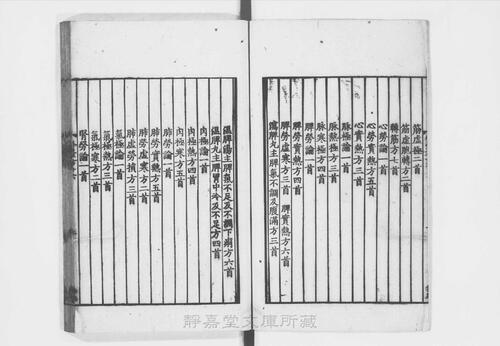 筋虛極二首
筋虛方二首
轉筋方七首
心勞論一首
心勞實熱方五首
心實熱方三首
脈極論一首
脈熱極方三首
脈寒極方四首
脾勞論一首
脾勞實熱方四首 脾實熱方六首
脾勞虛寒方三首
瀉脾丸主脾氣不調及腹滿方三首
溫脾湯主脾氣不足及不調下痢方六首
溫脾丸主脾胃中冷及不足方四首
肉極論一首
肉極熱方四首
肉極寒方五首
肺勞論一首
肺勞實熱方五首
肺勞虛寒方二首
肺虛勞損方三首
氣極論一首
氣極熱方三首
氣極寒方二首
腎勞論一首
靜嘉堂文庫所藏